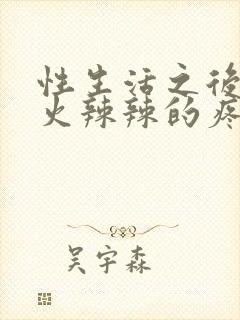 性生活之後
火辣辣的疼
吴宇森